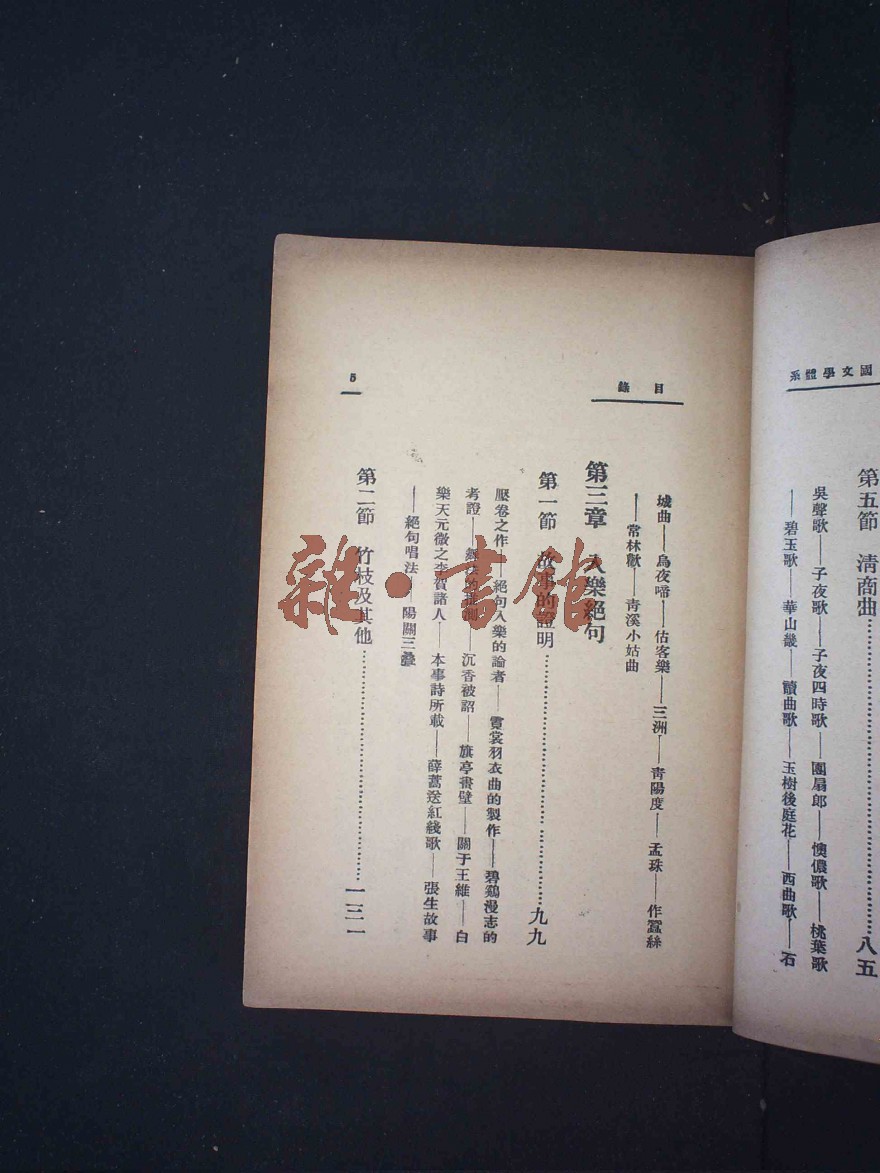 國文學體系
第五節 清商曲……………………八五
吳聲歌——子夜歌——子夜四時歌——團扇郎——懊儂歌——桃葉歌
——碧玉歌——華山畿——讀曲歌——玉樹後庭花——西曲歌——石
目錄
城曲——烏夜啼——估客樂——三洲——青陽度——孟珠——作蠶絲
——常林歡——青溪小姑曲
第三章 入樂絕句
第一節 故事的證明……………………九九
壓卷之作——絕句入樂的論者——霓裳羽衣曲的製作——碧鷄漫志的
考證——沉香被詔——旗亭畫壁——關于王維——白
樂天元微之李賀諸人——本事詩所載——薛蒿送紅綫歌——張生故事
——絕句唱法——陽關三疊
第二節 竹枝及其他……………………一三一
5
雜·書館